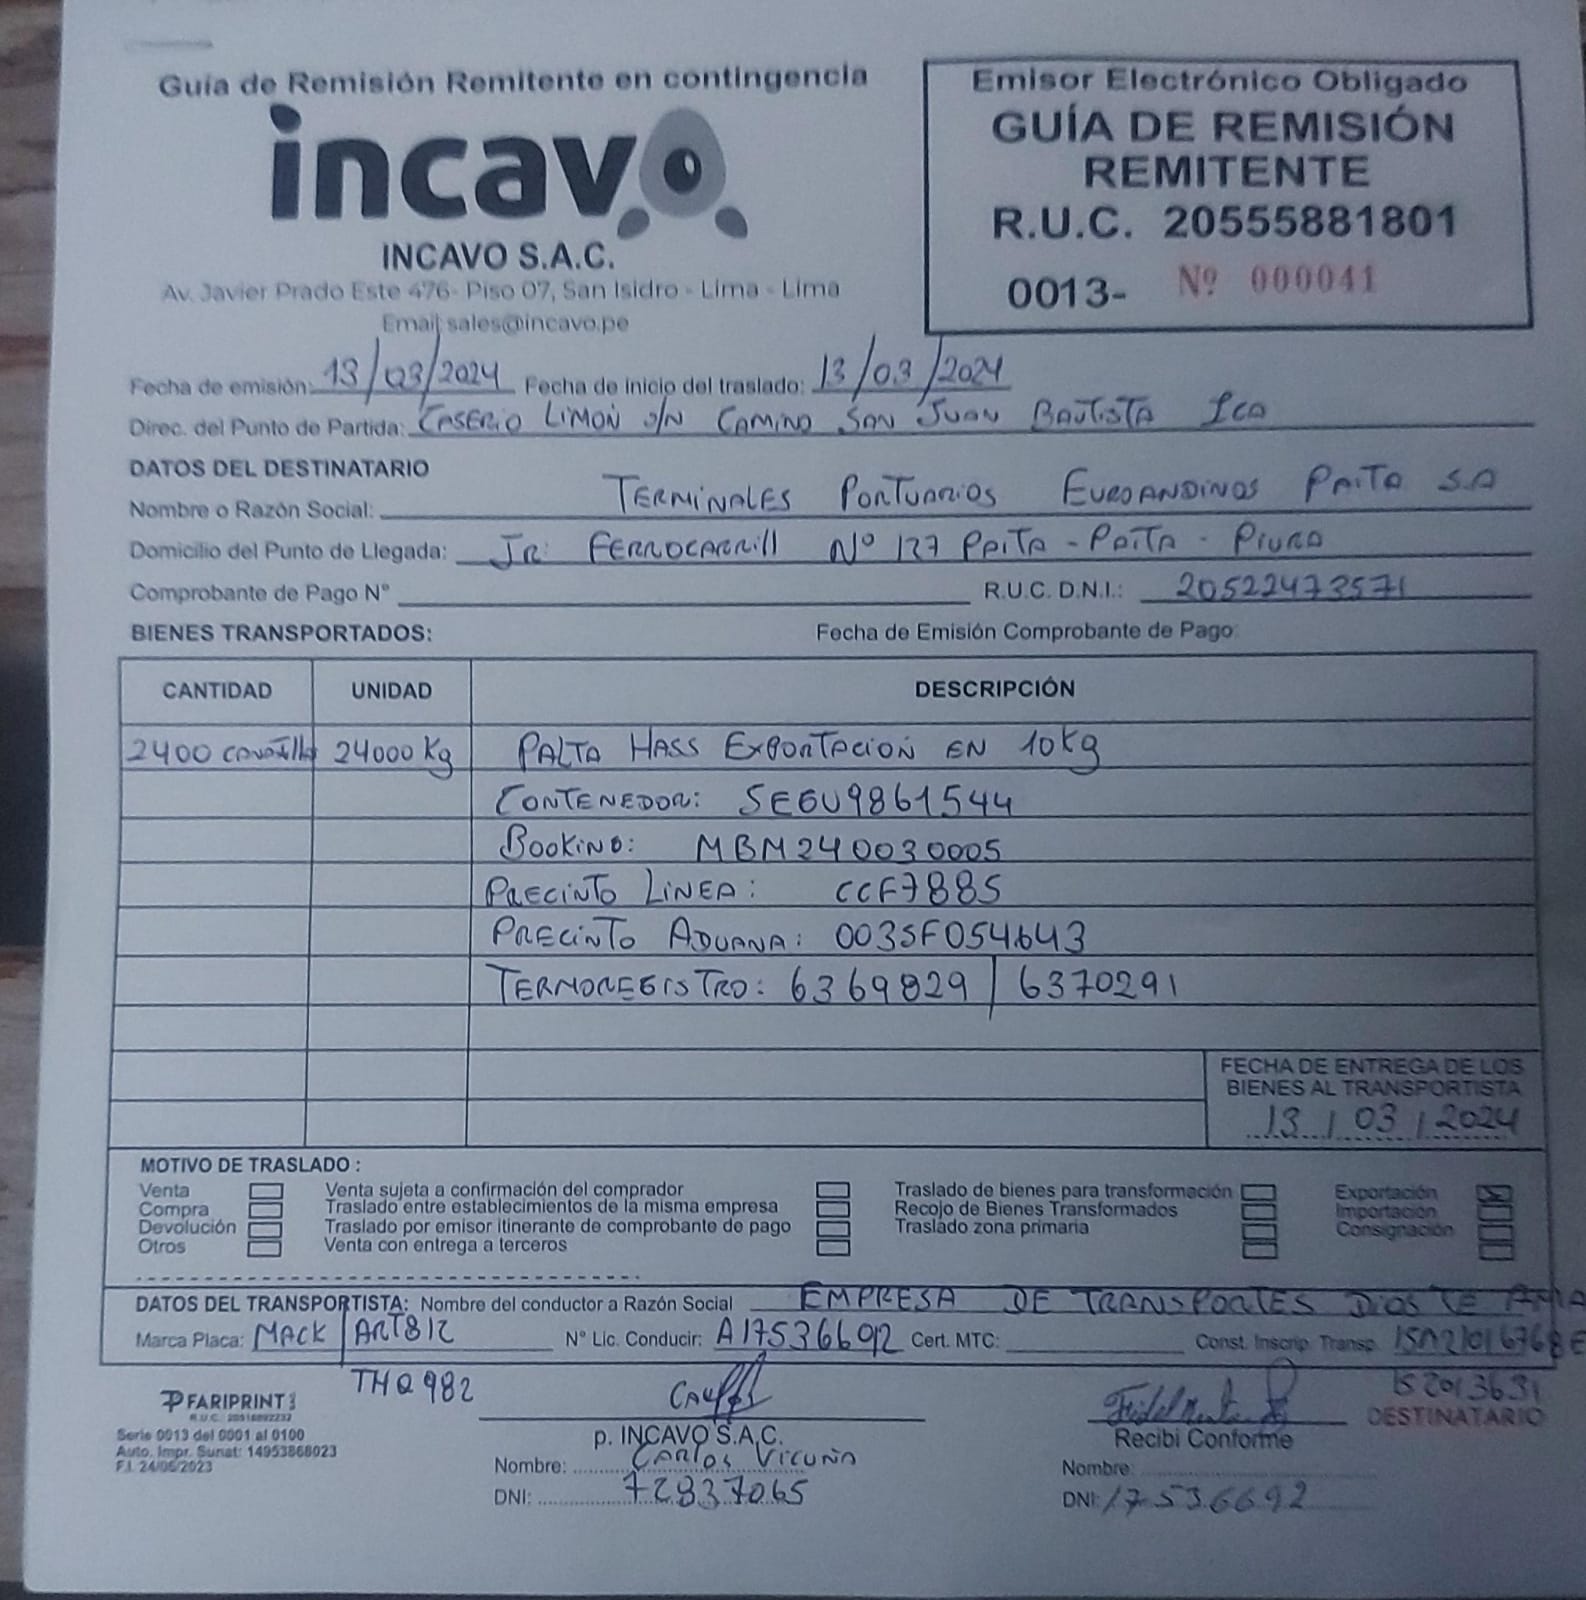 Guía de Remisión Remitente en contingencia
incavo
INCAVO S.A.C.
Av. Javier Prado Este 476- Piso 07, San Isidro - Lima - Lima
Email: sales@incavo.pe
Emisor Electrónico Obligado
GUÍA DE REMISIÓN
REMITENTE
R.U.C. 20555881801
0013- Nº 000041
Fecha de emisión: 13/03/2024 Fecha de inicio del traslado: 13/03/2024
Direc. del Punto de Partida: CASERIO LIMON S/N CAMINO SAN JUAN BAUTISTA ICA
DATOS DEL DESTINATARIO
Nombre o Razón Social: TERMINALES PORTUARIOS EUROANDINOS PAITA S.A
Domicilio del Punto de Llegada: JR: FERROCARRIll Nº 127 PAITA - PAITA - PIURA
Comprobante de Pago N° R.U.C. D.N.I.: 20522473571
BIENES TRANSPORTADOS: Fecha de Emisión Comprobante de Pago:
CANTIDAD UNIDAD DESCRIPCIÓN
2400 24000 Kg PALTA HASS EXPORTACION EN 10Kg
CONTENEDOR: SEGU9861544
BOOKING: MBM240030005
PRECINTO LINEA: CCF7885
PRECINTO ADUANA: 003SF054643
TERMOREGISTRO: 6369829 / 6370291
FECHA DE ENTREGA DE LOS
BIENES AL TRANSPORTISTA
13 / 03 / 2024
MOTIVO DE TRASLADO :
Venta Venta sujeta a confirmación del comprador Traslado de bienes para transformación Exportación
Compra Traslado entre establecimientos de la misma empresa Recojo de Bienes Transformados Importación
Devolución Traslado por emisor itinerante de comprobante de pago Traslado zona primaria Consignación
Otros Venta con entrega a terceros
DATOS DEL TRANSPORTISTA: Nombre del conductor a Razón Social EMPRESA DE TRANSPORTES DIOS TE AMA
Marca Placa: MACK / ART812 N° Lic. Conducir: A17536692 Cert. MTC: Const. Inscrip. Transp.
THQ982
FARIPRINT
Serie 0013 del 0001 al 0100
Auto. Impr. Sunat: 14953868023
F.I. 24/06/2023
p. INCAVO S.A.C.
Nombre: CARLOS VICUÑA
DNI: 72837065
DESTINATARIO
Recibi Conforme
Nombre:
DNI: 17536692